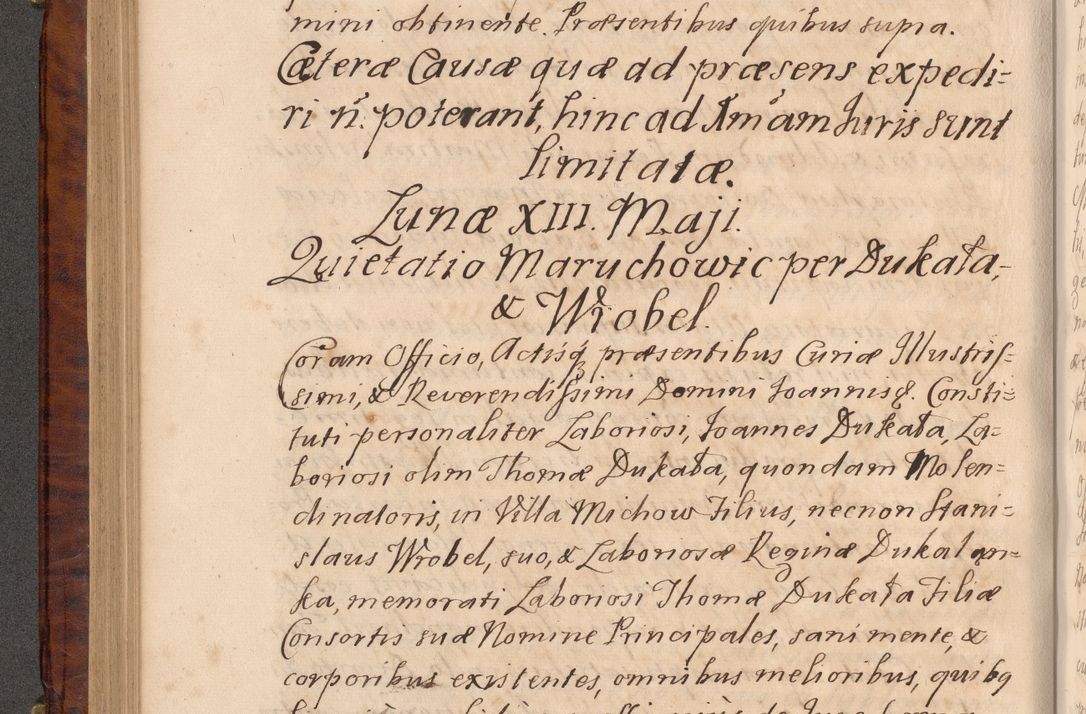 mini obtinente. Præsentibus quibus supra.
Cæteræ Causæ quæ ad præsens expedi=
ri ñ. poterant, hinc ad Imãm Juris sunt
limitatæ.
Lunæ XIII. Maji.
Quietatio Maruchowic per Dukała,
& Wrobel.
Coram Officio, Actisq́ præsentibus Curiæ Illustris=
simi, & Reverendissimi Domini Joannis &. Consti=
tuti personaliter Laboriosi, Joannes Dukała, La=
boriosi olim Thomæ Dukała, quondam Molen=
dinatoris, in Villa Michow Filius, necnon Stani=
slaus Wrobel, suo, & Laboriosæ Reginæ Dukalan=
ka, memorati Laboriosi Thomæ Dukała Filiæ
Consortis suæ Nomine Principales, sani mente, &
corporibus existentes, omnibus melioribus, quibq